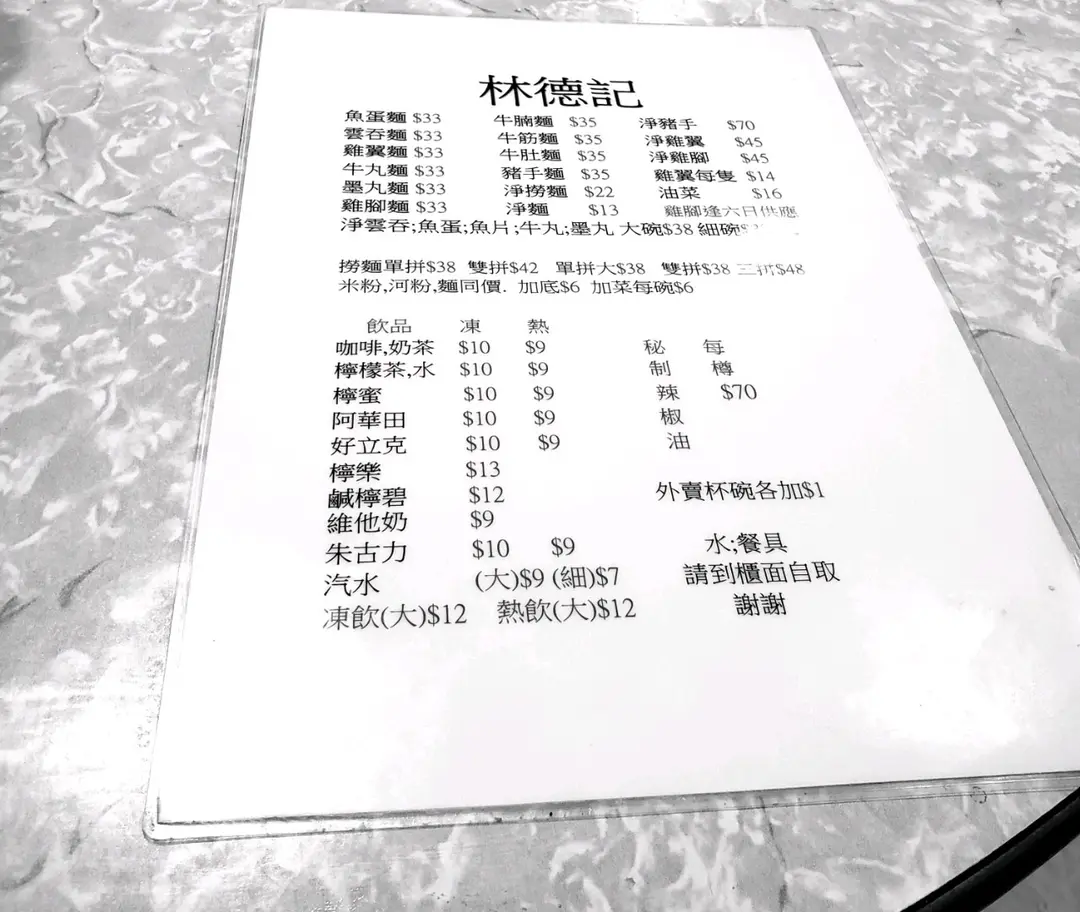 林德記
魚蛋麵 $33 牛腩麵 $35 淨豬手 $70
雲吞麵 $33 牛筋麵 $35 淨雞翼 $45
雞翼麵 $33 牛肚麵 $35 淨雞腳 $45
牛丸麵 $33 豬手麵 $35 雞翼每隻 $14
墨丸麵 $33 淨撈麵 $22 油菜 $16
雞腳麵 $33 淨麵 $13 雞腳逢六日供應
淨雲吞;魚蛋;魚片;牛丸;墨丸 大碗$38 細碗
撈麵單拼$38 雙拼$42 單拼大$38 雙拼$38 三拼$48
米粉,河粉,麵同價. 加底$6 加菜每碗$6
飲品 凍 熱
咖啡,奶茶 $10 $9 秘 每
檸檬茶,水 $10 $9 制 樽
檸蜜 $10 $9 辣 $70
阿華田 $10 $9 椒
好立克 $10 $9 油
檸樂 $13
鹹檸碧 $12 外賣杯碗各加$1
維他奶 $9
朱古力 $10 $9 水;餐具
汽水 (大)$9 (細)$7 請到櫃面自取
凍飲(大)$12 熱飲(大)$12 謝謝